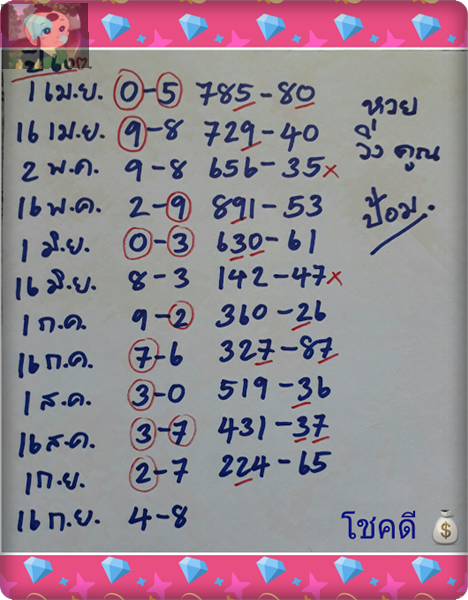 ปี 60
1 เม.ย. 0-5 785-80
16 เม.ย. 9-8 729-40
2 พ.ค. 9-8 656-35x
16 พ.ค. 2-9 891-53
1 มิ.ย. 0-3 630-61
16 มิ.ย. 8-3 142-47x
1 ก.ค. 9-2 360-26
16 ก.ค. 7-6 327-87
1 ส.ค. 3-0 519-36
16 ส.ค. 3-7 431-37
1 ก.ย. 2-7 224-65
16 ก.ย. 4-8
หวย
วิ่ง คุณ
ป้อม.
โชคดี